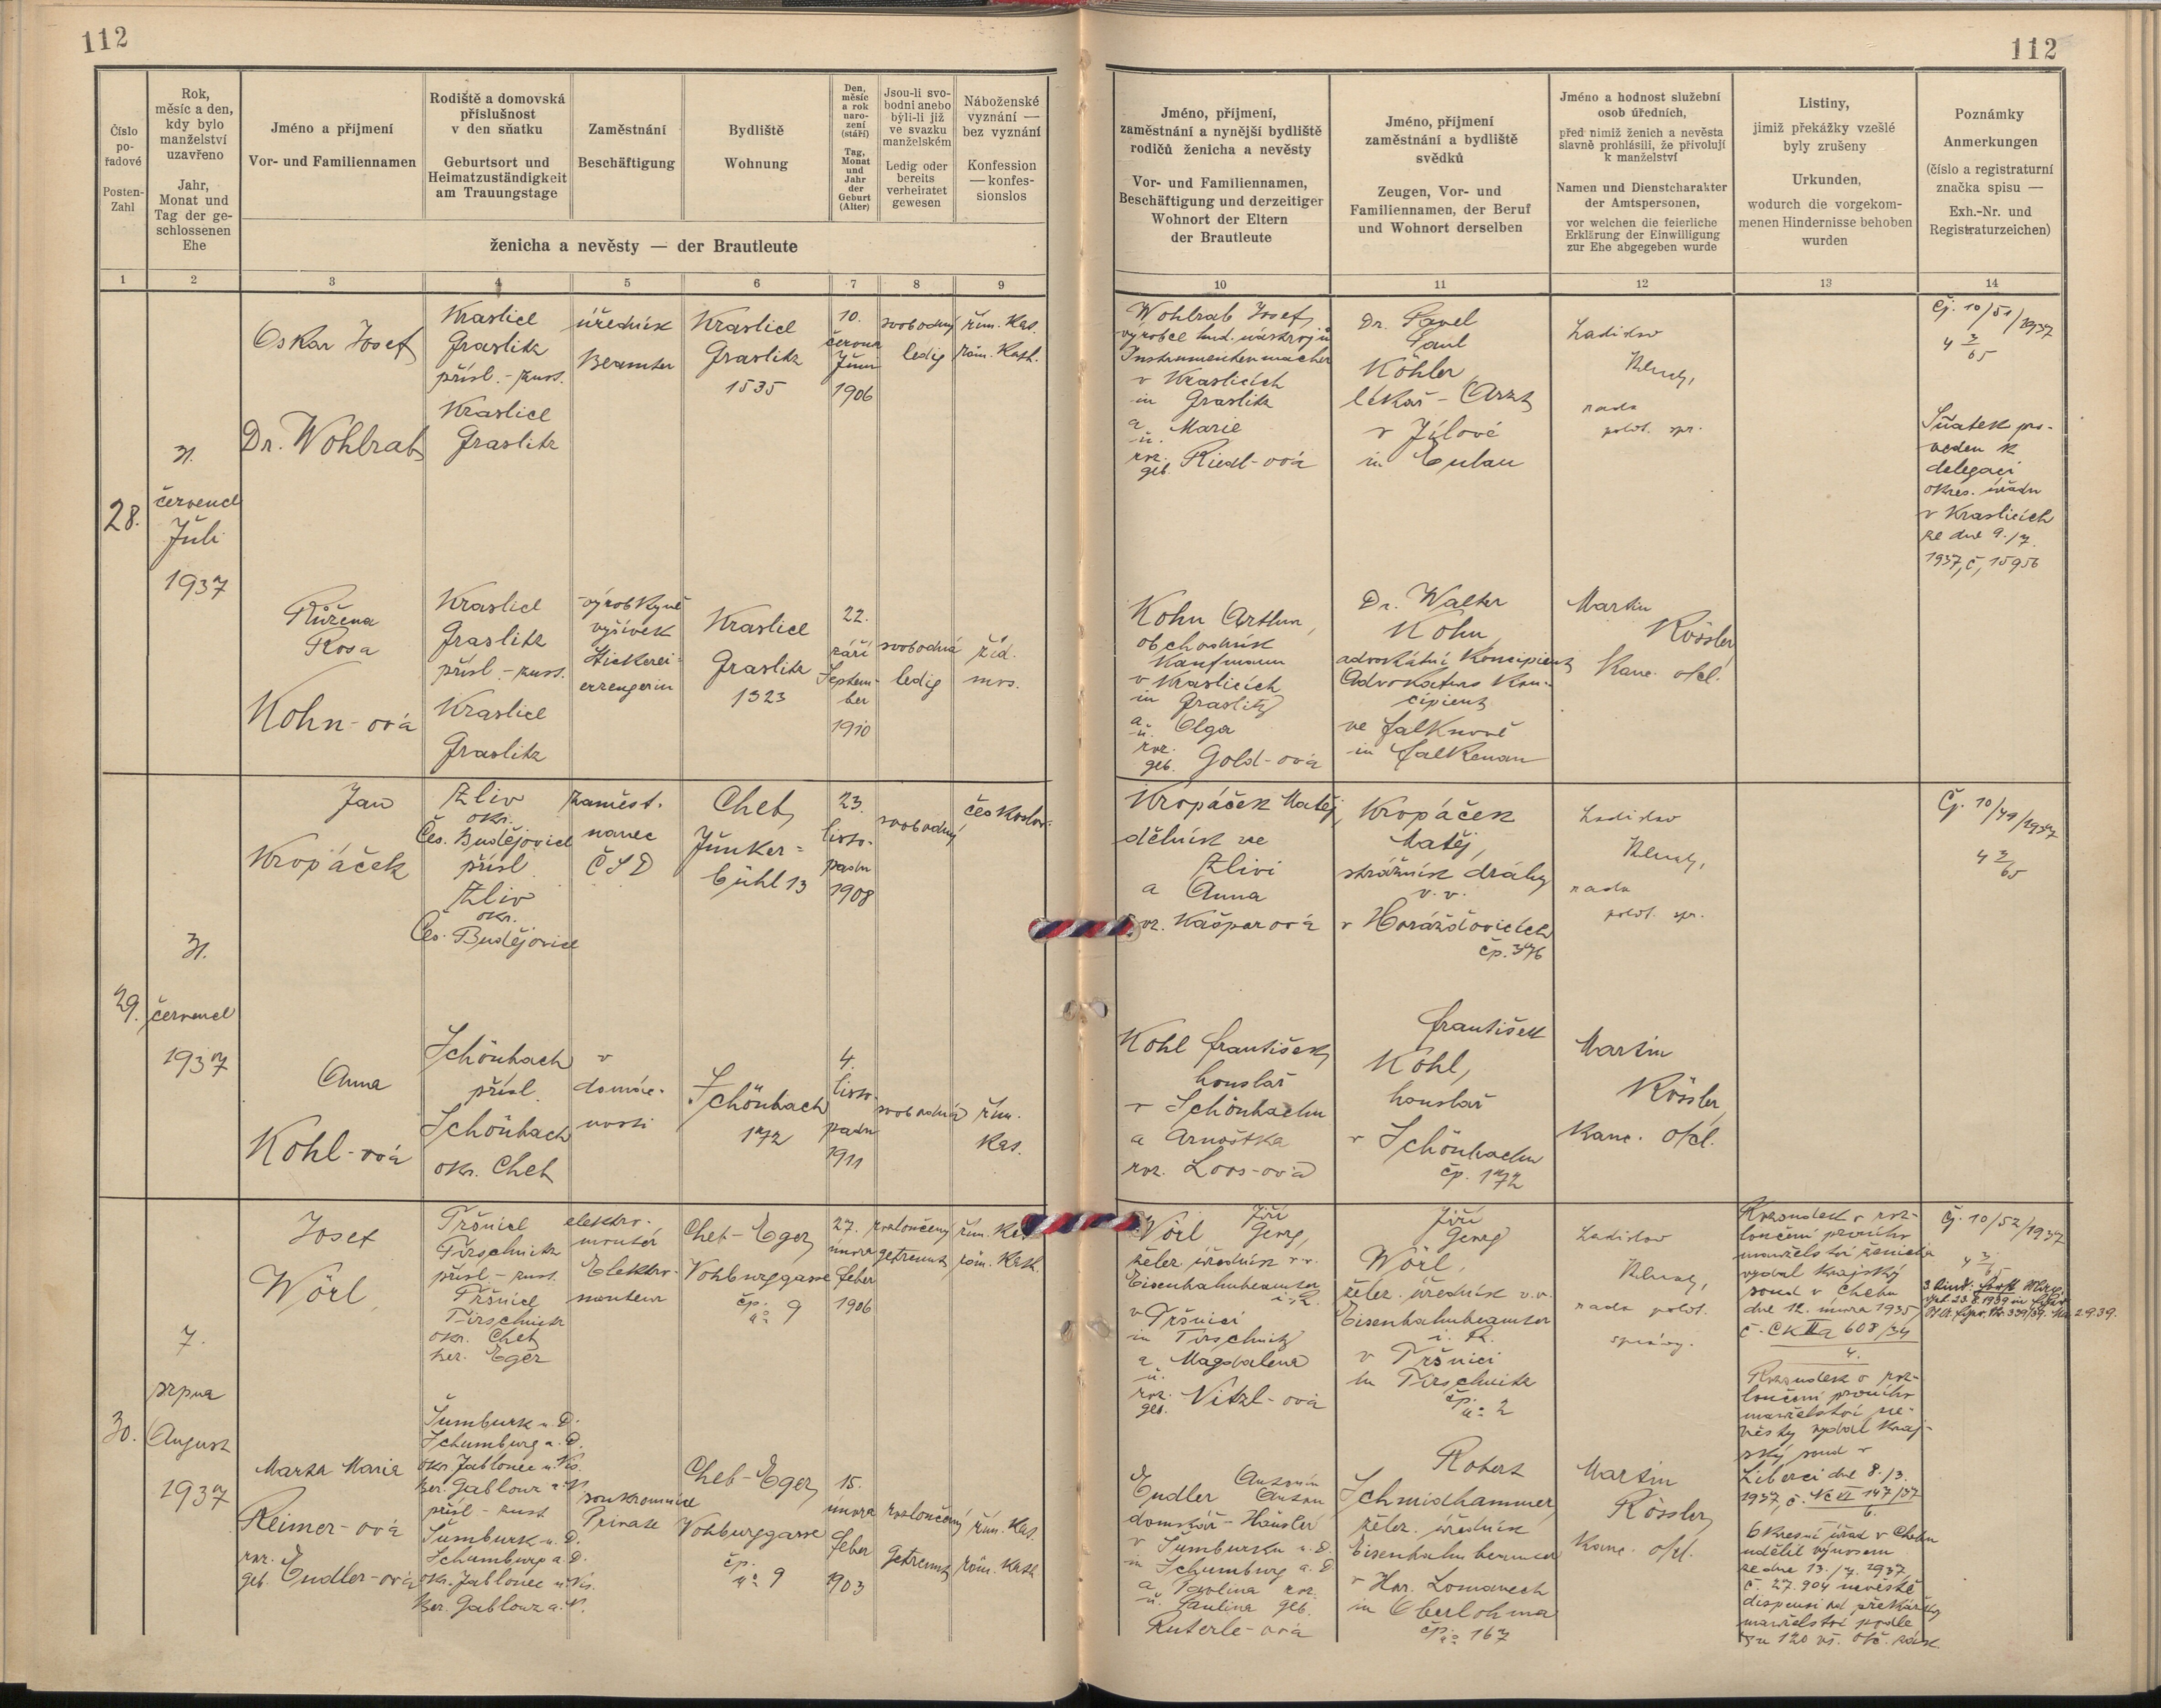 112
112
Číslo
po-
řadové
Posten-
Zahl
Rok,
měsíc a den,
kdy bylo
manželství
uzavřeno
Jahr,
Monat und
Tag der ge-
schlossenen
Ehe
Jméno a příjmení
Vor- und Familiennamen
Rodiště a domovská
příslušnost
v den sňatku
Geburtsort und
Heimatzuständigkeit
am Trauungstage
Zaměstnání
Beschäftigung
Bydliště
Wohnung
Den,
měsíc
a rok
naro-
zení
(stáří)
Tag,
Monat
und
Jahr
der
Geburt
(Alter)
Jsou-li svo-
bodni anebo
byli-li již
ve svazku
manželském
Ledig oder
bereits
verheiratet
gewesen
Náboženské
vyznání —
bez vyznání
Konfession
— konfes-
sionslos
ženicha a nevěsty — der Brautleute
Jméno, příjmení,
zaměstnání a nynější bydliště
rodičů ženicha a nevěsty
Vor- und Familiennamen,
Beschäftigung und derzeitiger
Wohnort der Eltern
der Brautleute
Jméno, příjmení
zaměstnání a bydliště
svědků
Zeugen, Vor- und
Familiennamen, der Beruf
und Wohnort derselben
Jméno a hodnost služební
osob úředních,
před nimiž ženich a nevěsta
slavně prohlásili, že přivolují
k manželství
Namen und Dienstcharakter
der Amtspersonen,
vor welchen die feierliche
Erklärung der Einwilligung
zur Ehe abgegeben wurde
Listiny,
jimiž překážky vzešlé
byly zrušeny
Urkunden,
wodurch die vorgekom-
menen Hindernisse behoben
wurden
Poznámky
Anmerkungen
(číslo a registraturní
značka spisu —
Exh.-Nr. und
Registraturzeichen)
1 2 3 4 5 6 7 8 9 10 11 12 13 14
28.
31.
červenec
Juli
1937
Oskar Josef
Dr. Wohlrab
Kraslice
Graslitz
přísl. - zust.
Kraslice
Graslitz
úředník
Beamter
Kraslice
Graslitz
1535
10.
června
Juni
1906
svobodný
ledig
řím. kat.
röm. kath.
Wohlrab Josef,
výrobce hud. nástrojů
Instrumentenmacher
v Kraslicích
in Graslitz
a
u. Marie
roz.
geb. Riedl-ová
Dr. Pavel
Paul
Köhler,
lékař - Arzt
v Jílové
in Eulau
Ladislav
rada
polit. spr.
Čj. 10/51/1937
4 3/65
Sňatek pro-
veden k
delegaci
okres. úřadu
v Kraslicích
ze dne 9./7.
1937, č. 15956
Růžena
Rosa
Kohn-ová
Kraslice
Graslitz
přísl. - zust.
Kraslice
Graslitz
výrobkyně
výšivek
Stickerei-
erzeugerin
Kraslice
Graslitz
1323
22.
září
Septem-
ber
1910
svobodná
ledig
žid.
mos.
Kohn Arthur,
obchodník
Kaufmann
v Kraslicích
in Graslitz
a
u. Olga
roz.
geb. Gold-ová
Dr. Walter
Kohn,
advokátní koncipient
Advokaturs Kon-
cipient
ve Falknově
in Falkenau
Martin
Rössler,
kanc. ofcl.
29.
31.
červenec
1937
Jan
Kropáček
Zliv
okr.
Čes. Budějovice
přísl.
Zliv
okr.
Čes. Budějovice
Zaměst.
nanec
ČSD
Cheb,
Junker-
bühl 13
23.
listo-
padu
1908
svobodný
českoslov.
Kropáček Matěj,
dělník ve
Zlivi
a Anna
roz. Kašparová
Kropáček
Matěj,
strážník dráhy
v. v.
v Horažďovicích
čp. 376
Ladislav
rada
polit. spr.
Čj. 10/49/1937
4 3/65
Anna
Kohl-ová
Schönbach
přísl.
Schönbach
okr. Cheb
v
domác-
nosti
Schönbach
172
4.
listo-
padu
1911
svobodná
řím.
kat.
Kohl František,
houslař
v Schönbachu
a Arnoštka
roz. Loos-ová
František
Kohl,
houslař
v Schönbachu
čp. 172
Martin
Rössler,
kanc. ofcl.
30.
7.
srpna
August
1937
Josef
Wörl,
Tršnice
Tirschnitz
přísl. - zust.
Tršnice
Tirschnitz
okr. Cheb
bez. Eger
elektro-
montér
Elektro-
monteur
Cheb-Eger,
Vohburggasse
čp. 9
27.
února
Feber
1906
rozloučený
getrennt
řím. kat.
röm. kath.
Jiří
Wörl Georg,
želez. úředník v. v.
Eisenbahnbeamter
i. R.
v Tršnici
in Tirschnitz
a
u. Magdalena
roz.
geb. Vitzl-ová
Jiří
Georg
Wörl,
želez. úředník v. v.
Eisenbahnbeamter
i. R.
v Tršnici
in Tirschnitz
čp. 2
Ladislav
rada polit.
správy.
Rozsudek o roz-
loučení prvního
manželství ženicha
vydal krajský
soud v Chebu
dne 12. února 1935
č. Ck IIa 608/34
4.
Čj. 10/52/1937
4 3/65
Marta Marie
Reimer-ová
roz.
geb. Endler-ová
Šumburk n. D.
Schumburg a. D.
okr. Jablonec n. Nis.
bez. Gablonz a. N.
přísl - zust.
Šumburk n. D.
Schumburg a. D.
okr. Jablonec n. Nis.
bez. Gablonz a. N.
soukromnice
Private
Cheb-Eger,
Vohburggasse
čp. 9
15.
února
Feber
1903
rozloučený
getrennt
řím. kat.
röm. kath.
Antonín
Endler Anton
domkář - Häusler
v Šumburku n. D.
in Schumburg a. D.
a Pavlina roz.
u. Paulina geb.
Ruterle-ová
Robert
Schmidhammer,
želez. úředník
Eisenbahnbeamter
v Hor. Lomanech
in Oberlohma
čp. 167
Martin
Rössler,
kanc. ofcl.
Rozsudek o roz-
loučení prvního
manželství ne-
věsty vydal kraj-
ský soud v
Liberci dne 8./3.
1937, č. Nc VI 147/37
6.
Okresní úřad v Chebu
udělil výnosem
ze dne 13./7. 1937,
č. 27.904 nevěstě
dispensi od překážky
manželství podle
§u 120 vš. obč. zák.